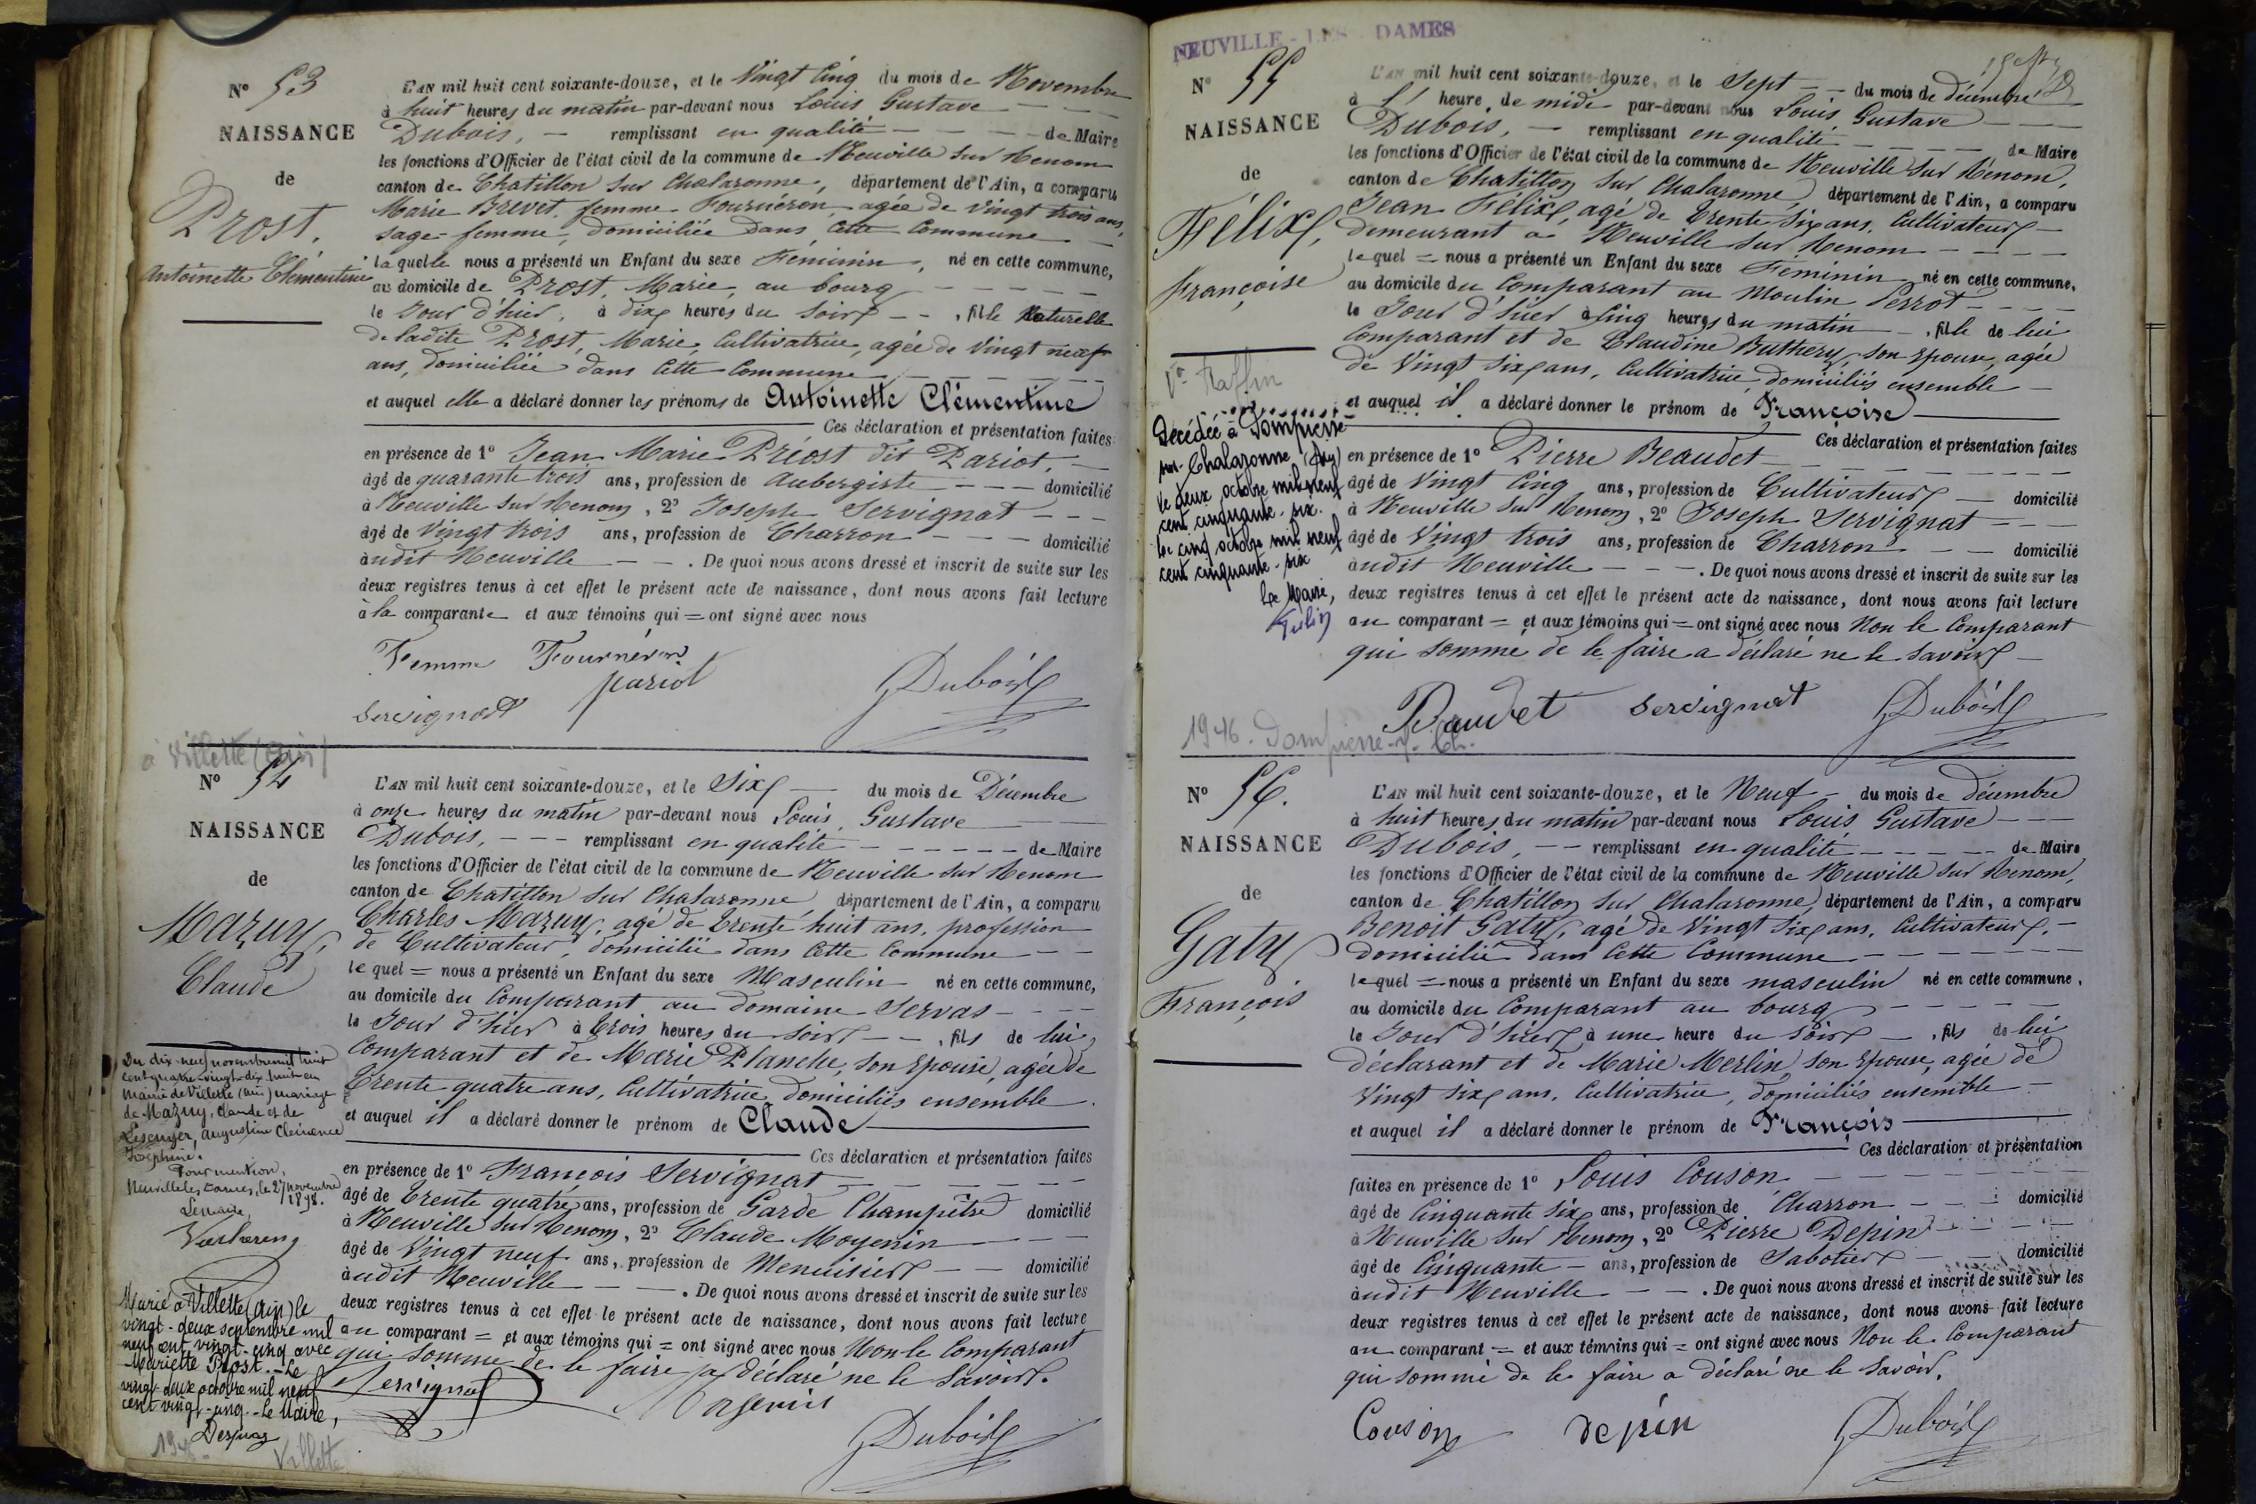 N° 53
NAISSANCE
de
Prost,
Antoinette Clémentine
L'AN mil huit cent soixante-douze, et le Vingt Cinq du mois de Novembre
à huit heures du matin par-devant nous Louis Gustave
Dubois, remplissant en qualité de Maire
les fonctions d'Officier de l'état civil de la commune de Neuville sur Renom
canton de Chatillon sur Chalaronne, département de l'Ain, a comparu
Marie Brevet, femme Fournéron, agée de Vingt trois ans,
sage-femme, domiciliée dans cette Commune
laquelle nous a présenté un Enfant du sexe Féminin, né en cette commune,
au domicile de Prost, Marie, au bourg
le Jour d'hier, à dix heures du soir, fille Naturelle
de ladite Prost, Marie, Cultivatrice, agée de Vingt neuf
ans, domiciliée dans Cette Commune
et auquel elle a déclaré donner les prénoms de Antoinette Clémentine
Ces déclaration et présentation faites
en présence de 1° Jean Marie Préost dit Pariot,
âgé de quarante trois ans, profession de Aubergiste domicilié
à Neuville sur Renom, 2° Joseph Servignat
âgé de Vingt trois ans, profession de Charron domicilié
audit Neuville. De quoi nous avons dressé et inscrit de suite sur les
deux registres tenus à cet effet le présent acte de naissance, dont nous avons fait lecture
à la comparante et aux témoins qui = ont signé avec nous
Femme Fournéron
pariot
servignat
Dubois
à Villette (Ain)
N° 54
NAISSANCE
de
Mazuy,
Claude
L'AN mil huit cent soixante-douze, et le Six du mois de Décembre
à onze heures du matin par-devant nous Louis, Gustave
Dubois, remplissant en qualité de Maire
les fonctions d'Officier de l'état civil de la commune de Neuville sur Renom
canton de Chatillon sur Chalaronne département de l'Ain, a comparu
Charles Mazuy, agé de trente huit ans, profession
de Cultivateur, domicilié dans cette Commune
lequel = nous a présenté un Enfant du sexe Masculin né en cette commune,
au domicile du Comparant au domaine Servas
le Jour d'hier à trois heures du soir, fils de lui,
Comparant et de Marie Planche, son Epouse, agée de
trente quatre ans, Cultivatrice, domiciliés ensemble.
et auquel il a déclaré donner le prénom de Claude
Ces déclaration et présentation faites
en présence de 1° François Servignat
âgé de trente quatre ans, profession de Garde Champêtre domicilié
à Neuville sur Renom, 2° Claude Moyenin
âgé de Vingt neuf ans, profession de Menuisier domicilié
audit Neuville. De quoi nous avons dressé et inscrit de suite sur les
deux registres tenus à cet effet le présent acte de naissance, dont nous avons fait lecture
au comparant = et aux témoins qui = ont signé avec nous Non le Comparant
qui sommé de le faire a déclaré ne le savoir.
Servignat
Dubois
Du dix-neuf novembre mil huit
cent quatre-vingt-dix-huit en
Mairie de Villette (Ain) mariage
de Mazuy, Claude et de
Augustine Clémence
Joséphine.
Pour mention,
Neuville les Dames, le 27 novembre
1898.
Le maire,
Marié à Villette (Ain) le
vingt-deux septembre mil
neuf cent vingt-cinq avec
Mariette Prost. - Le
vingt-deux octobre mil neuf
cent vingt-cinq. - Le Maire,
Villette
NEUVILLE-LES-DAMES
N° 55
NAISSANCE
de
Félix,
Françoise
L'AN mil huit cent soixante-douze, et le Sept du mois de Décembre
à 1 heure de midi par-devant nous Louis Gustave
Dubois, remplissant en qualité de Maire
les fonctions d'Officier de l'état civil de la commune de Neuville sur Renom,
canton de Chatillon sur Chalaronne, département de l'Ain, a comparu
Jean Félix, agé de trente six ans, Cultivateur
demeurant à Neuville sur Renom
lequel = nous a présenté un Enfant du sexe Féminin né en cette commune,
au domicile du Comparant au Moulin Perrot
le Jour d'hier à cinq heures du matin, fille de lui
Comparant et de Claudine Buthery, son Epouse, agée
de Vingt six ans, Cultivatrice, domiciliés ensemble
et auquel il a déclaré donner le prénom de Françoise
Ces déclaration et présentation faites
en présence de 1° Pierre Beaudet
âgé de Vingt Cinq ans, profession de Cultivateur domicilié
à Neuville sur Renom, 2° Joseph Servignat
âgé de Vingt trois ans, profession de Charron domicilié
audit Neuville. De quoi nous avons dressé et inscrit de suite sur les
deux registres tenus à cet effet le présent acte de naissance, dont nous avons fait lecture
au comparant = et aux témoins qui = ont signé avec nous Non le Comparant
qui sommé de le faire a déclaré ne le savoir
Baudet servignat Dubois
Décédée à Dompierre
sur Chalaronne (Ain)
le deux octobre mil neuf
cent cinquante-six.
le cinq octobre mil neuf
cent cinquante-six
Le Maire,
1946. Dompierre-s.-Ch.
N° 56.
NAISSANCE
de
Gaty
François
L'AN mil huit cent soixante-douze, et le Neuf du mois de décembre
à huit heures du matin par-devant nous Louis Gustave
Dubois, remplissant en qualité de Maire
les fonctions d'Officier de l'état civil de la commune de Neuville sur Renom,
canton de Chatillon sur Chalaronne, département de l'Ain, a comparu
Benoit Gaty, agé de Vingt six ans, Cultivateur,
domicilié dans Cette Commune
lequel = nous a présenté un Enfant du sexe masculin né en cette commune,
au domicile du Comparant au bourg
le Jour d'hier à une heure du soir, fils de lui
déclarant et de Marie Merlin, son Epouse, agée de
Vingt six ans, Cultivatrice, domiciliés ensemble
et auquel il a déclaré donner le prénom de François
Ces déclaration et présentation
faites en présence de 1° Louis Couson
âgé de Cinquante six ans, profession de Charron domicilié
à Neuville sur Renom, 2° Pierre Depin
âgé de Cinquante ans, profession de Sabotier domicilié
audit Neuville. De quoi nous avons dressé et inscrit de suite sur les
deux registres tenus à cet effet le présent acte de naissance, dont nous avons fait lecture
au comparant = et aux témoins qui = ont signé avec nous Non le Comparant
qui sommé de le faire a déclaré ne le savoir.
Couson depin Dubois